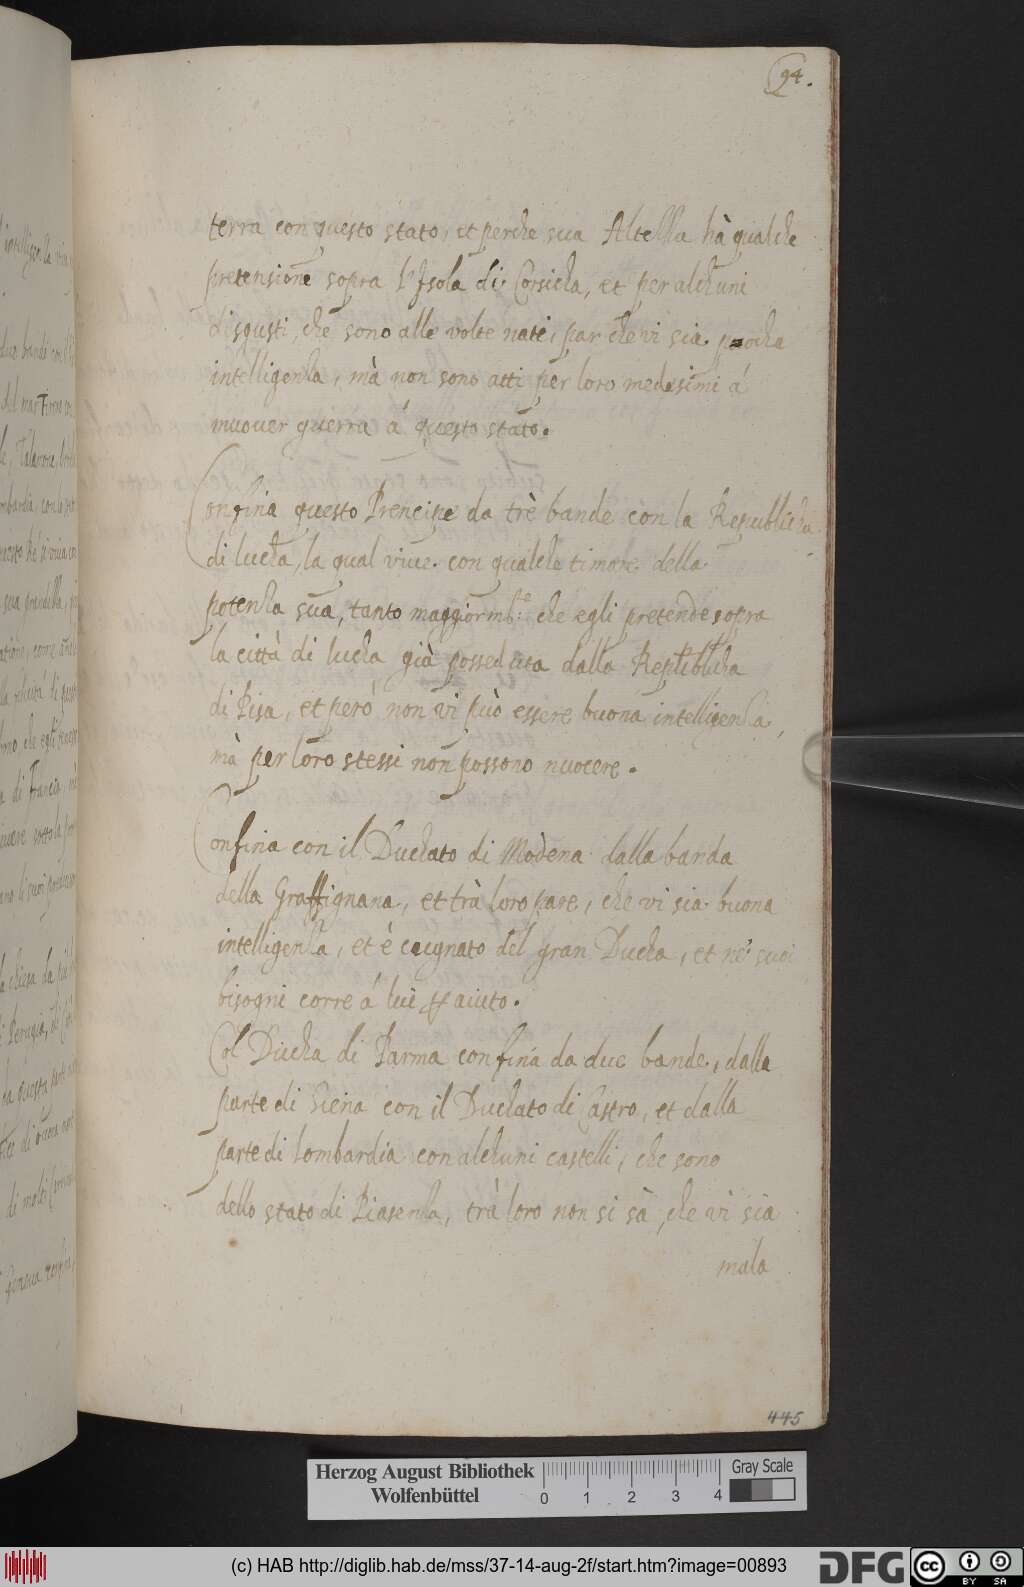 94.
terra con questo stato, et perche sua Altezza hà qualche
pretensione sopra l'Isola di Corsicha, et per alchuni
disgusti, che sono alle volte nati, par che vi sia pocha
intelligenza, mà non sono atti per loro medesimi á
muover guerra á questo stato.
Confina questo Prencipe da trè bande con la Republicha
di lucha, la qual vive con qualche timore della
potenza sua, tanto maggiormte: che egli pretende sopra
la città di lucha già posseduta dalla Republicha
di Pisa, et peró non vi può essere buona intelligenza,
mà per loro stessi non possono nuocere.
Confina con il Duchato di Modena dalla banda
della Graffignana, et trà loro pare, che vi sia buona
intelligenza, et è cugnato del gran Ducha, et ne' suoi
bisogni corre á lui aiuto.
Col Ducha di Parma confina da due bande, dalla
parte di Siena con il Duchato di Castro, et dalla
parte di lombardia con alchuni castelli, che sono
dello stato di Piasenza, trà loro non si sà, che vi sia
mala
445
Herzog August Bibliothek
Wolfenbüttel
0 1 2 3 4
Gray Scale
(c) HAB http://diglib.hab.de/mss/37-14-aug-2f/start.htm?image=00893
DFG
cc BY SA